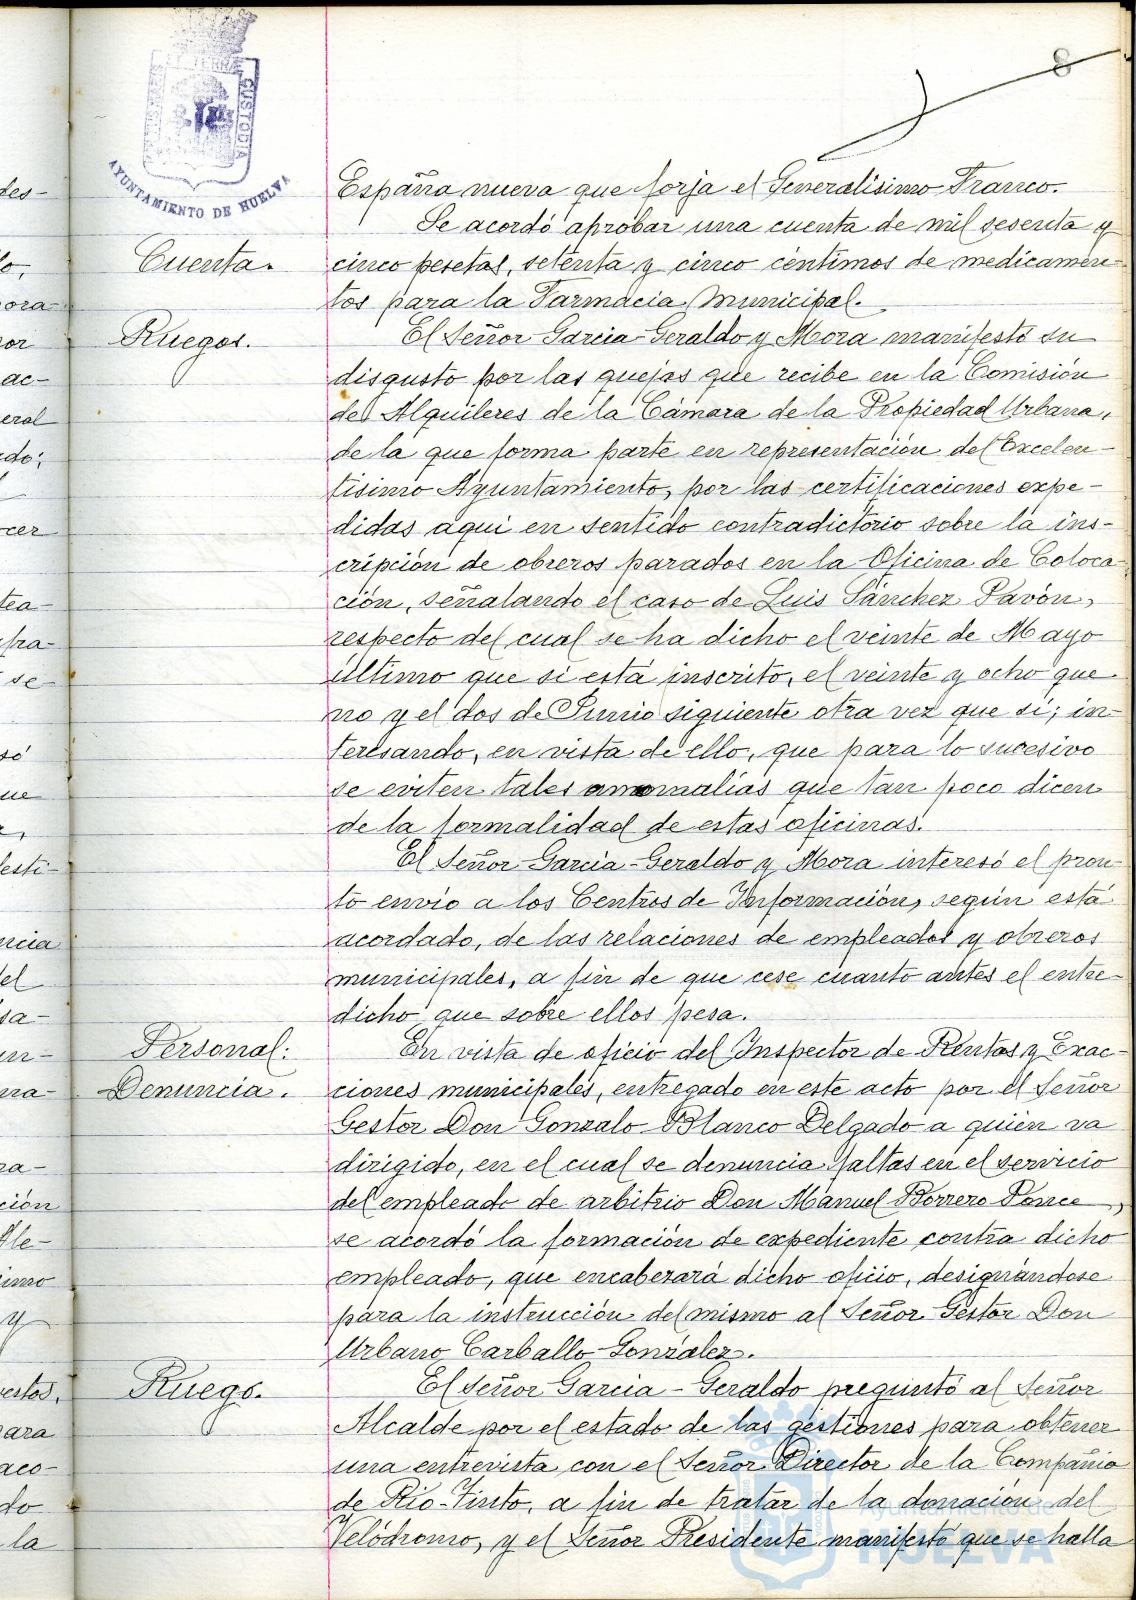 8
PORTUS MARIS ET TERRAE CUSTODIA
AYUNTAMIENTO DE HUELVA
España nueva que forja el Generalísimo Franco.
Se acordó aprobar una cuenta de mil sesenta y
Cuenta. cinco pesetas, setenta y cinco céntimos de medicamen-
tos para la Farmacia Municipal.
Ruegos. El Señor Garcia-Geraldo y Mora manifestó su
disgusto por las quejas que recibe en la Comisión
de Alquileres de la Cámara de la Propiedad Urbana,
de la que forma parte en representación del Excelen-
tísimo Ayuntamiento, por las certificaciones expe-
didas aquí en sentido contradictorio sobre la ins-
cripción de obreros parados en la Oficina de Coloca-
ción, señalando el caso de Luis Sánchez Pavón,
respecto del cual se ha dicho el veinte de Mayo
último que si está inscrito, el veinte y ocho que
no y el dos de Junio siguiente otra vez que sí; in-
teresando, en vista de ello, que para lo sucesivo
se eviten tales anomalías que tan poco dicen
de la formalidad de estas oficinas.
El Señor García-Geraldo y Mora interesó el pron-
to envío a los Centros de Información, según está
acordado, de las relaciones de empleados y obreros
municipales, a fin de que cese cuanto antes el entre-
dicho que sobre ellos pesa.
Personal: En vista de oficio del Inspector de Rentas y Exac-
Denuncia. ciones municipales, entregado en este acto por el Señor
Gestor Don Gonzalo Blanco Delgado a quien va
dirigido, en el cual se denuncia faltas en el servicio
del empleado de arbitrio Don Manuel Borrero Ponce,
se acordó la formación de expediente contra dicho
empleado, que encabezará dicho oficio, designándose
para la instrucción del mismo al Señor Gestor Don
Urbano Carballo González.
Ruego. El Señor Garcia-Geraldo preguntó al Señor
Alcalde por el estado de las gestiones para obtener
una entrevista con el Señor Director de la Compañia
de Rio-Tinto, a fin de tratar de la donación del
Velódromo, y el Señor Presidente manifestó que se halla
Ayuntamiento de
HUELVA